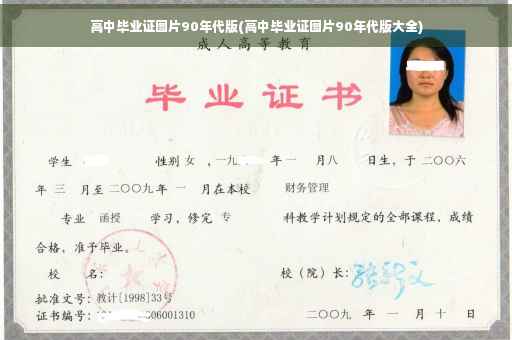 高中毕业证图片90年代版(高中毕业证图片90年代版大全)
成人高等教育
毕业证书
学生 性别 女 ，一九 年 一 月八 日生，于 二〇〇六
年 三 月至 二〇〇九 年 一 月在本校 财务管理
专业 函授 学习，修完 专 科教学计划规定的全部课程，成绩
合格，准予毕业。
校 名： 校（院）长：
批准文号：教计[1998]33号
证书编号： 06001310 二〇〇九 年 一 月 十 日